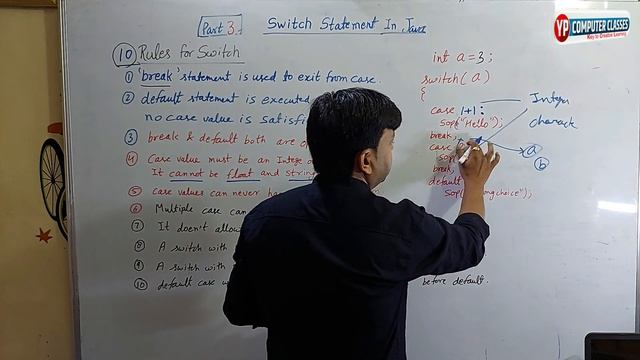 Part 3.
Switch Statement In Java
YP COMPUTER CLASSES
Key to Creative Learning
10 Rules for Switch
1 'break' statement is used to exit from case.
2 default statement is executed
no case value is satisfi
3 break & default both are o
4 Case value must be an Intege o
It cannot be float and String
5 case values can never ha
6 Multiple case can
7 It doen't allow
8 A switch with
9 A switch with
10 default case w
before default.
int a=3;
switch(a)
{
case 1+1:
sop("Hello");
break;
case
sop
break;
default
sop( ong choice");
Integer
charack
a
b